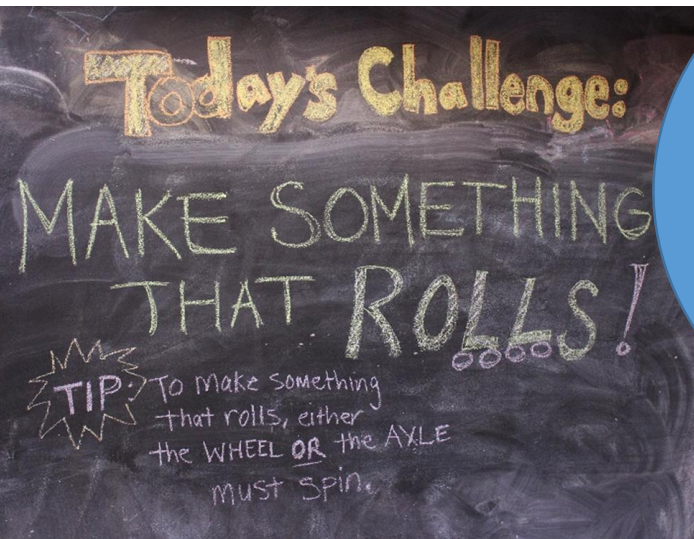 Today's Challenge:
MAKE SOMETHING
THAT ROLLS!
TIP: To make something
that rolls, either
the WHEEL OR the AXLE
must spin.